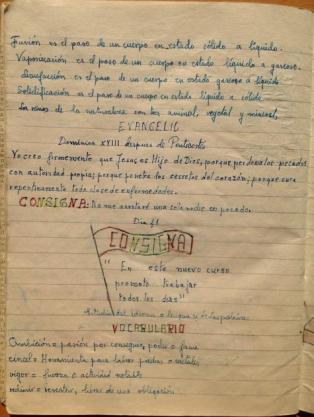 Fusión es el paso de un cuerpo en estado sólido a líquido.
Vaporización es el paso de un cuerpo en estado líquido a gaseoso.
es el paso de un cuerpo en estado gaseoso a líquido
Solidificación es el paso de un cuerpo en estado líquido a sólido.
Los reinos de la naturaleza son tres animal, vegetal y mineral.
EVANGELIO
Dominica XVIII después de Pentecostés
Yo creo firmemente que Jesús es Hijo de Dios, porque perdona los pecados
con autoridad propia; porque penetra los secretos del corazón; porque cura
repentinamente toda clase de enfermedades.
CONSIGNA: No me acostaré una sola noche en pecado.
Día 21
CONSIGNA
"En este nuevo curso
prometo trabajar
todos los días"
VOCABULARIO
Ambición = pasión por conseguir, poder o fama
cincel = Herramienta para labrar piedras o metales
vigor = fuerza o actividad notable
redimir = rescatar, librar de una obligación